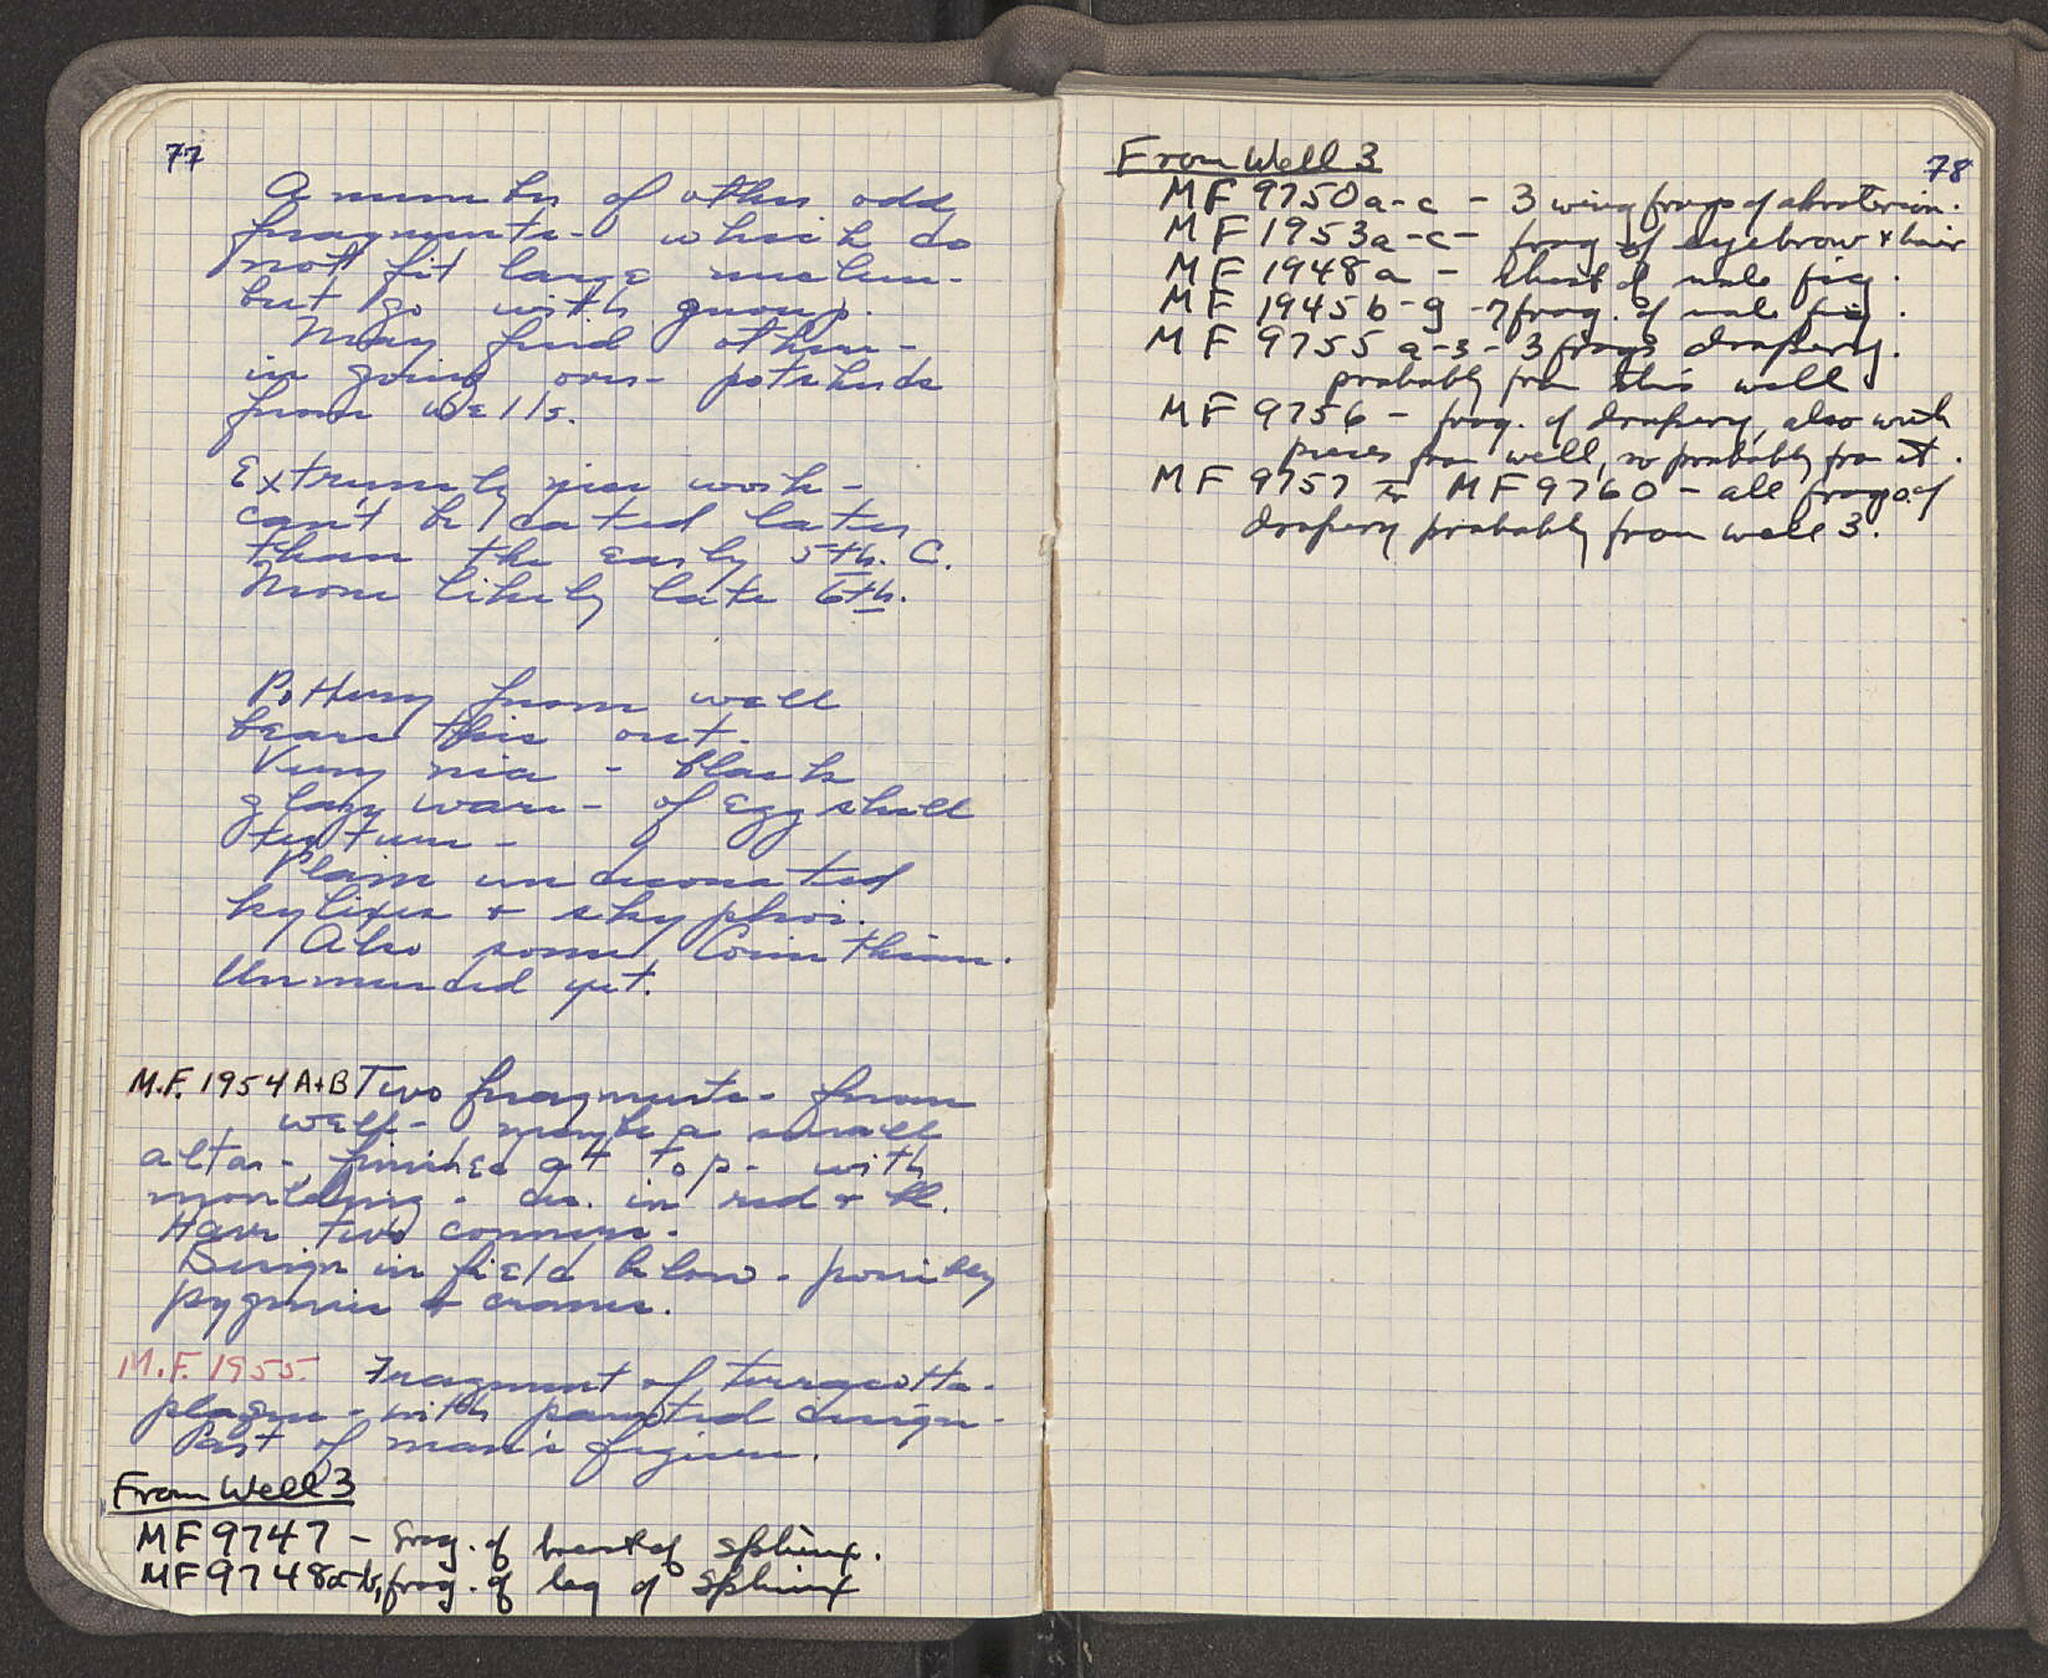 77
A number of other odd
fragments- which do
not fit large
but go with group.
May find others-
in going over potsherds
from wells.
Extremely nice work-
can't be dated later
than the early 5th. C.
More likely late 6th.
Pottery from well
bears this out.
Very nice - black
glaze ware - of egg shell
texture -
Plain undecorated
kylixes + skyphoi.
Also some Corinthian.
Unmended yet.
M.F. 1954 A+B Two fragments- from
well- maybe a small
altar- finished at top- with
moulding - dec. in red + bl.
Have two corners.
Design in field below- possibly
pygmies + cranes.
M.F. 1955. Fragment of terracotta-
plaque- with painted design-
Part of man's figure.
From Well 3
MF 9747 - frag. of breast of sphinx.
MF 9748a-b, frag. of leg of sphinx
78
From Well 3
MF 9750a-c - 3 wing frags of akroterion.
MF 1953a-c- frag of eyebrow + hair
MF 1948a - chest of male fig.
MF 1945 b-g -7 frag. of male fig.
MF 9755 a-3- 3 frags drapery.
probably from this well
MF 9756 - frag. of drapery, also with
pieces from well, so probably from it.
MF 9757 to MF 9760 - all frags of
drapery probably from well 3.